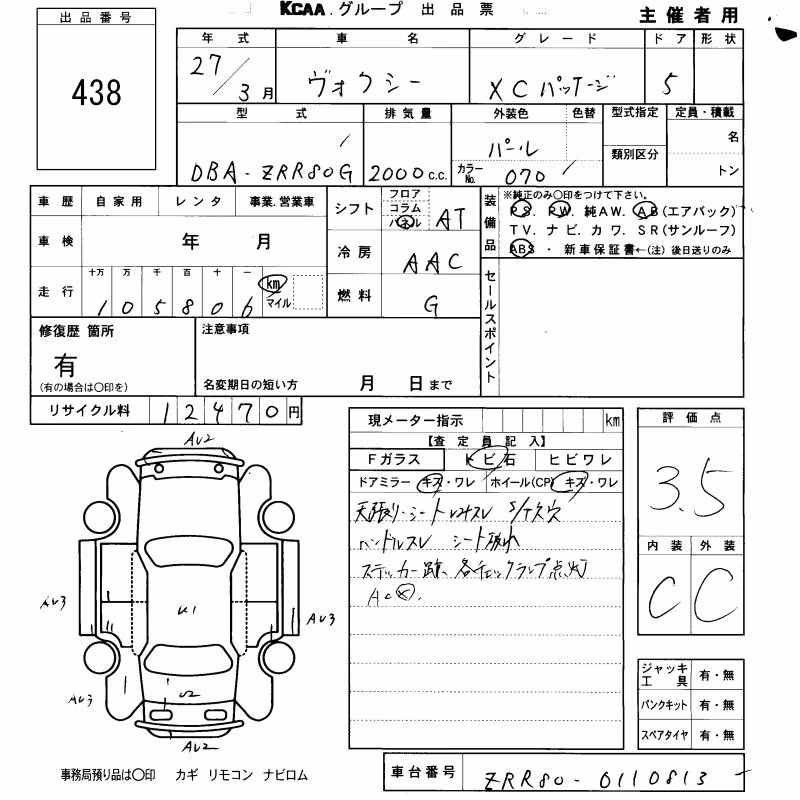 KCAA.グループ 出品票 主催者用
出品番号
438
年式 車名 グレード ドア 形状
27/3月 ヴォクシー X Cパッケージ 5
型式 排気量 外装色 色替 型式指定 定員・積載
DBA-ZRR80G 2000c.c. パール 名
カラーNo. 070 類別区分 トン
車歴 自家用 レンタ 事業.営業車
シフト フロア コラム パネル AT
装備品 ※純正のみ〇印をつけて下さい。
PS. PW. 純AW. AB(エアバック)
TV. ナビ. カワ. SR(サンルーフ)
ABS ・ 新車保証書←(注)後日送りのみ
車検 年 月
冷房 AAC
走行 十万 万 千 百 十 一
105806 km マイル
燃料 G
セールスポイント
修復歴 箇所 注意事項
有
(有の場合は〇印を) 名変期日の短い方 月 日まで
リサイクル料 12470円
現メーター指示 km
【査定員記入】
Fガラス トビ石 ヒビワレ
ドアミラー キズ・ワレ ホイール(CP) キズ・ワレ
天張り・シート S/T穴
ハンドルスレ シート破れ
ステッカー跡、各チェックランプ点灯
AC✕.
評価点
3.5
内装 外装
C C
AV2
AV3
U1
AV3
AV3
U2
AV2
ジャッキ工具 有・無
パンクキット 有・無
スペアタイヤ 有・無
事務局預り品は〇印 カギ リモコン ナビロム
車台番号 ZRR80-0110813